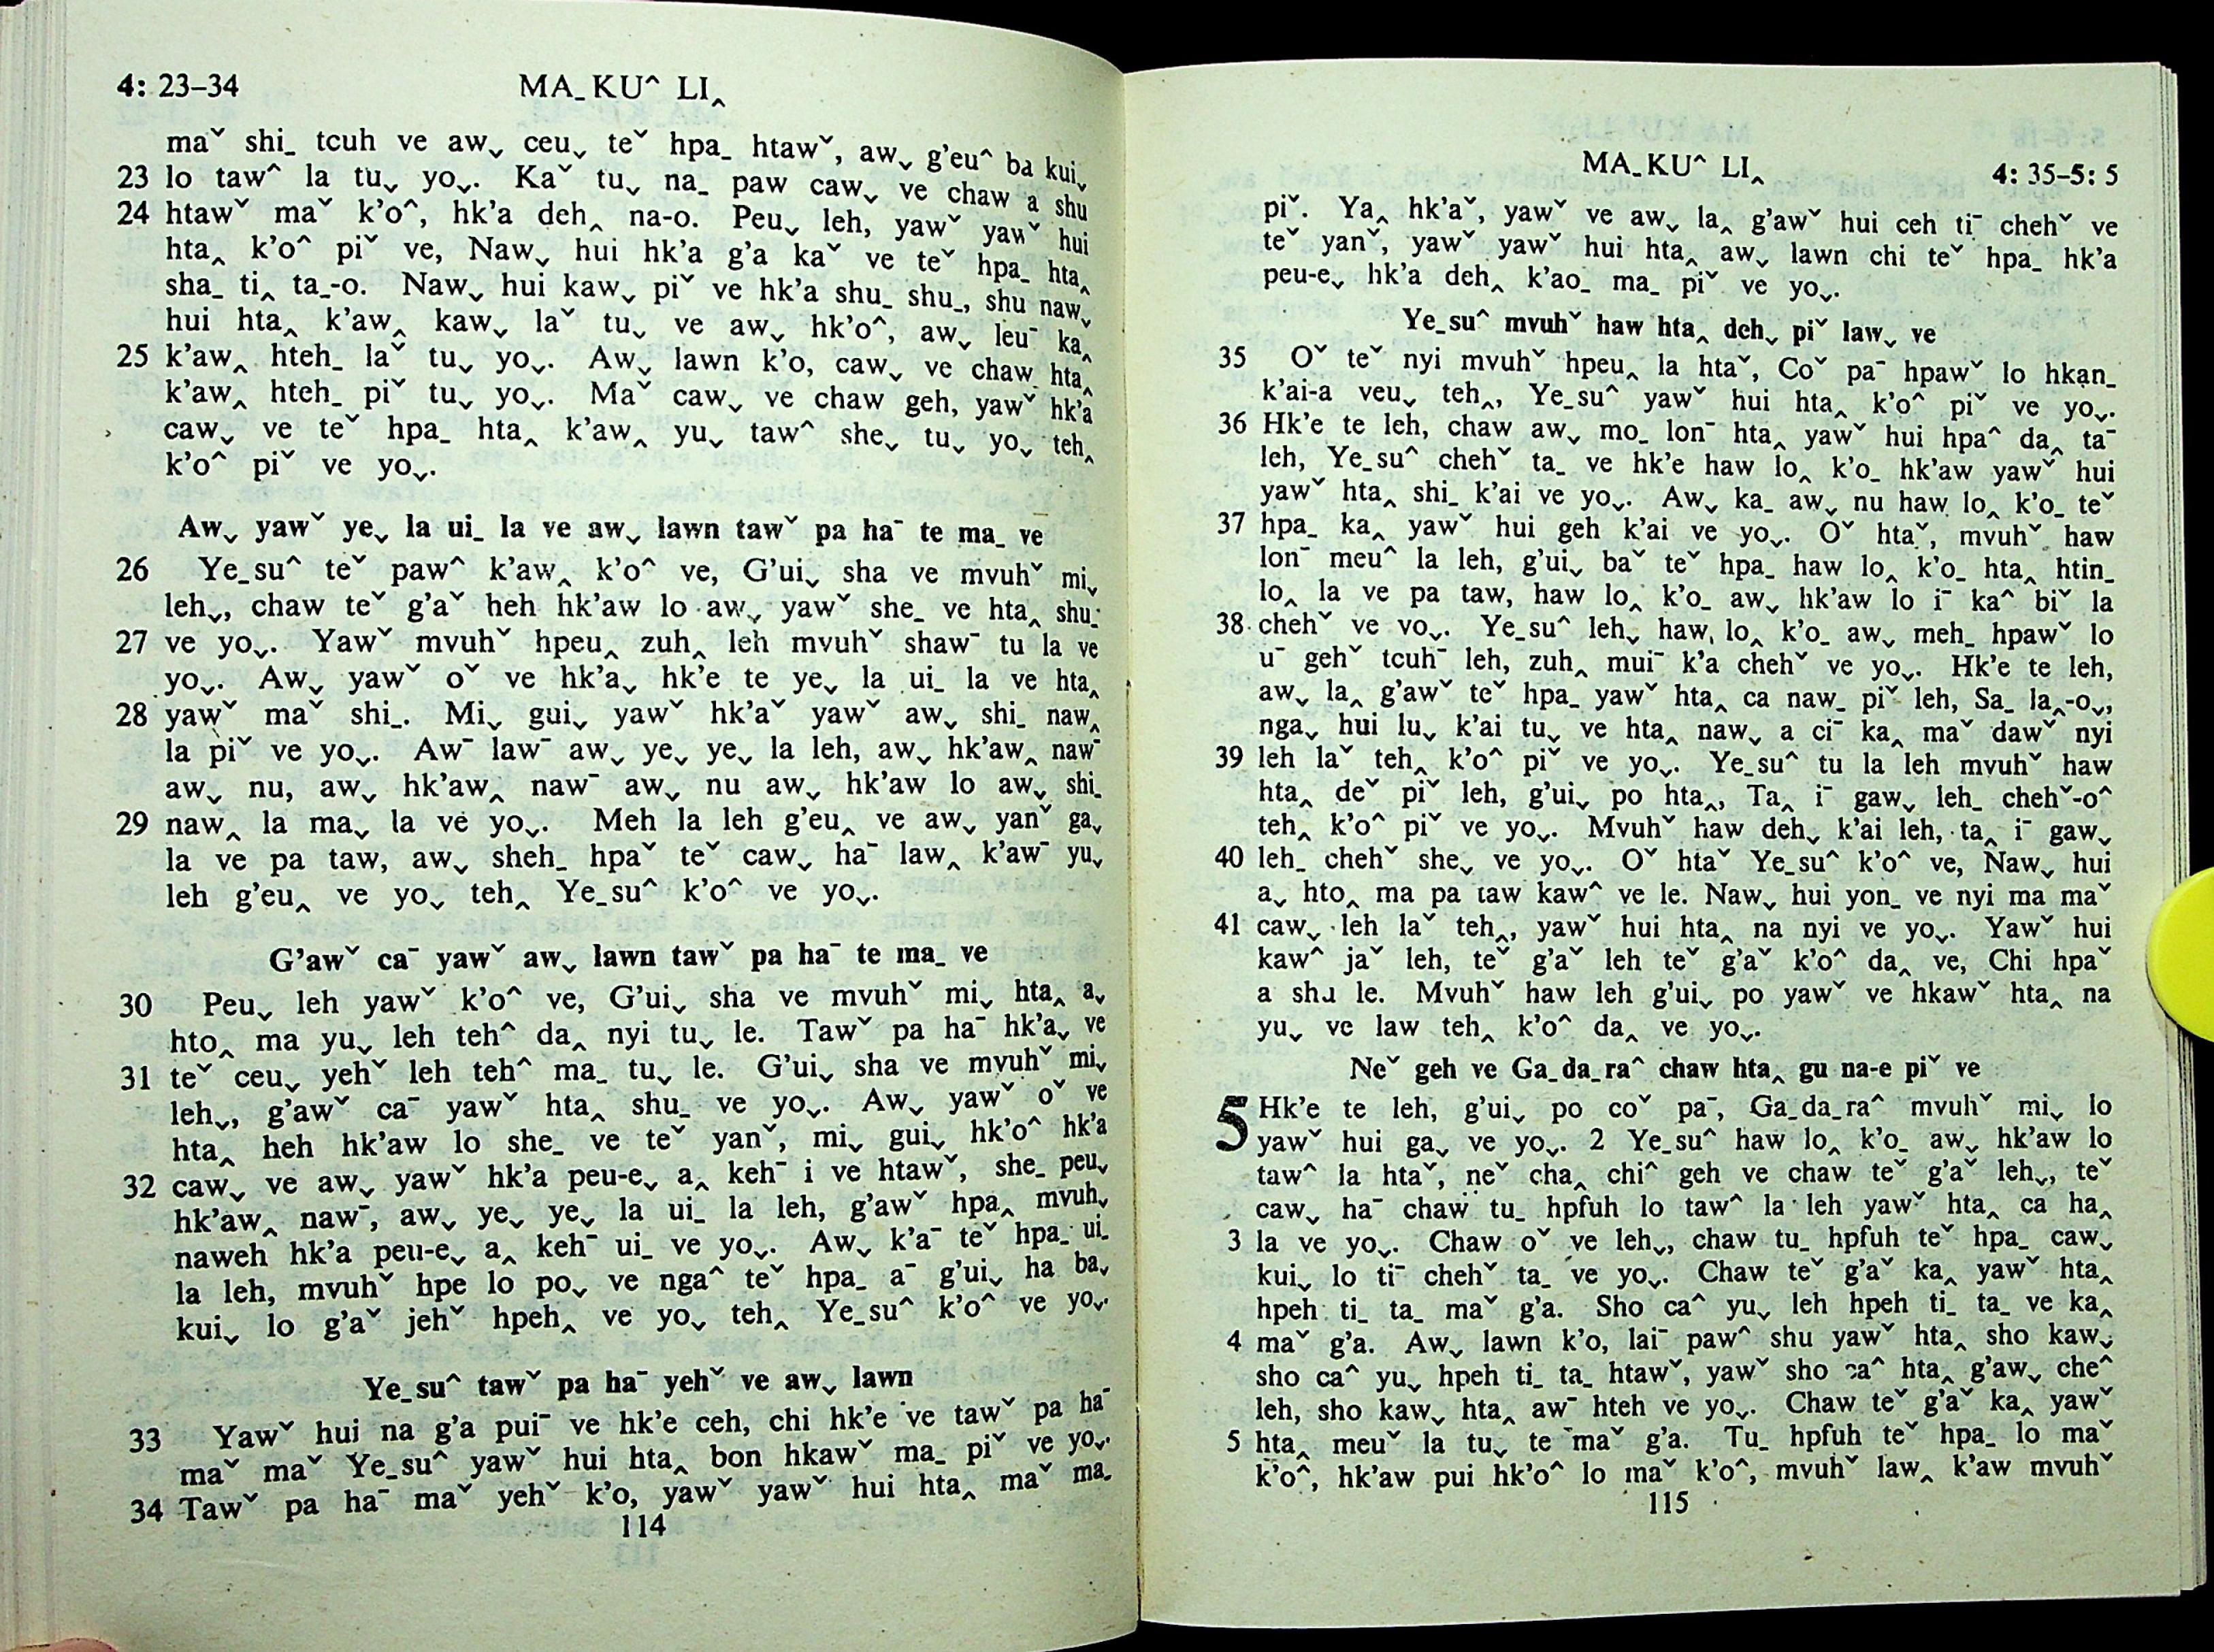 4: 23–34 MA_ KUˆ LI‸
maˇ shi_ tcuh ve aw⌄ ceu⌄ teˇ hpa_ htawˇ, aw⌄ g’euˆ ba kui⌄
23 lo tawˆ la tu⌄ yo⌄. Kaˇ tu⌄ na_ paw caw⌄ ve chaw a shu
24 htawˇ maˇ k’oˆ, hk’a deh‸ na-o. Peu⌄ leh, yawˇ yawˇ hui
hta‸ k’oˆ piˇ ve, Naw⌄ hui hk’a g’a kaˇ ve teˇ hpa_ hta‸
sha_ ti‸ ta_-o. Naw⌄ hui kaw⌄ piˇ ve hk’a shu_ shu_, shu naw⌄
hui hta‸ k’aw‸ kaw⌄ laˇ tu⌄ ve aw⌄ hk’oˆ, aw⌄ leuˉ ka‸
25 k’aw‸ hteh_ laˇ tu⌄ yo⌄. Aw⌄ lawn k’o, caw⌄ ve chaw hta‸
k’aw‸ hteh_ piˇ tu⌄ yo⌄. Maˇ caw⌄ ve chaw geh, yawˇ hk’a
caw⌄ ve teˇ hpa_ hta‸ k’aw‸ yu⌄ tawˆ she⌄ tu⌄ yo⌄ teh‸
k’oˆ piˇ ve yo⌄.
Aw⌄ yawˇ ye⌄ la ui_ la ve aw⌄ lawn tawˇ pa haˉ te ma_ ve
26 Ye_suˆ teˇ pawˆ k’aw‸ k’oˆ ve, G’ui⌄ sha ve mvuhˇ mi⌄
leh⌄, chaw teˇ g’aˇ heh hk’aw lo aw⌄ yawˇ she_ ve hta‸ shu_
27 ve yo⌄. Yawˇ mvuhˇ hpeu‸ zuh‸ leh mvuhˇ shawˉ tu la ve
yo⌄. Aw⌄ yawˇ oˇ ve hk’a⌄ hk’e te ye⌄ la ui_ la ve hta‸
28 yawˇ maˇ shi_. Mi⌄ gui⌄ yawˇ hk’aˇ yawˇ aw⌄ shi_ naw‸
la piˇ ve yo⌄. Awˉ lawˉ aw⌄ ye⌄ ye⌄ la leh, aw⌄ hk’aw‸ nawˉ
aw⌄ nu, aw⌄ hk’aw‸ nawˉ aw⌄ nu aw⌄ hk’aw lo aw⌄ shi_
29 naw‸ la ma⌄ la ve yo⌄. Meh la leh g’eu‸ ve aw⌄ yanˇ ga⌄
la ve pa taw, aw⌄ sheh_ hpaˇ teˇ caw⌄ haˉ law‸ k’awˉ yu⌄
leh g’eu‸ ve yo⌄ teh‸ Ye_suˆ k’oˆ ve yo⌄.
G’awˇ caˉ yawˇ aw⌄ lawn tawˇ pa haˉ te ma_ ve
30 Peu⌄ leh yawˇ k’oˆ ve, G’ui⌄ sha ve mvuhˇ mi⌄ hta‸ a⌄
hto‸ ma yu⌄ leh tehˆ da‸ nyi tu⌄ le. Tawˇ pa haˉ hk’a⌄ ve
31 teˇ ceu⌄ yehˇ leh tehˆ ma_ tu⌄ le. G’ui⌄ sha ve mvuhˇ mi⌄
leh⌄, g’awˇ caˉ yawˇ hta‸ shu_ ve yo⌄. Aw⌄ yawˇ oˇ ve
hta‸ heh hk’aw lo she_ ve teˇ yanˇ, mi⌄ gui⌄ hk’oˆ hk’a
32 caw⌄ ve aw⌄ yawˇ hk’a peu-e⌄ a‸ kehˉ i ve htawˇ, she_ peu⌄
hk’aw‸ nawˉ, aw⌄ ye⌄ ye⌄ la ui_ la leh, g’awˇ hpa‸ mvuh⌄
naweh hk’a peu-e⌄ a‸ kehˉ ui_ ve yo⌄. Aw⌄ k’aˉ teˇ hpa_ ui_
la leh, mvuhˇ hpe lo po⌄ ve ngaˆ teˇ hpa_ aˉ g’ui⌄ ha ba⌄
kui⌄ lo g’aˇ jehˇ hpeh‸ ve yo⌄ teh‸ Ye_suˆ k’oˆ ve yo⌄.
Ye_suˆ tawˇ pa haˉ yehˇ ve aw⌄ lawn
33 Yawˇ hui na g’a puiˉ ve hk’e ceh, chi hk’e ve tawˇ pa haˉ
maˇ maˇ Ye_suˆ yawˇ hui hta‸ bon hkawˇ ma_ piˇ ve yo⌄.
34 Tawˇ pa haˉ maˇ yehˇ k’o, yawˇ yawˇ hui hta‸ maˇ ma_
114
MA_KUˆ LI‸ 4: 35–5: 5
piˇ. Ya‸ hk’aˇ, yawˇ ve aw⌄ la‸ g’awˇ hui ceh tiˉ chehˇ ve
teˇ yanˇ, yawˇ yawˇ hui hta‸ aw⌄ lawn chi teˇ hpa_ hk’a
peu-e⌄ hk’a deh‸ k’ao_ ma_ piˇ ve yo⌄.
Ye_suˆ mvuhˇ haw hta‸ deh⌄ piˇ law⌄ ve
35 Oˇ teˇ nyi mvuhˇ hpeu‸ la htaˇ, Coˇ paˉ hpawˇ lo hkan_
k’ai-a veu⌄ teh‸, Ye_suˆ yawˇ hui hta‸ k’oˆ piˇ ve yo⌄.
36 Hk’e te leh, chaw aw⌄ mo_ lonˉ hta‸ yawˇ hui hpaˆ da‸ taˉ
leh, Ye_suˆ chehˇ ta_ ve hk’e haw lo‸ k’o_ hk’aw yawˇ hui
yawˇ hta‸ shi_ k’ai ve yo⌄. Aw⌄ ka_ aw⌄ nu haw lo‸ k’o_ teˇ
37 hpa_ ka‸ yawˇ hui geh k’ai ve yo⌄. Oˇ htaˇ, mvuhˇ haw
lonˉ meuˆ la leh, g’ui⌄ baˇ teˇ hpa_ haw lo‸ k’o_ hta‸ htin_
lo‸ la ve pa taw, haw lo‸ k’o_ aw⌄ hk’aw lo iˉ kaˆ biˇ la
38 chehˇ ve yo⌄. Ye_suˆ leh⌄ haw lo‸ k’o_ aw⌄ meh_ hpawˇ lo
uˉ gehˇ tcuhˉ leh, zuh‸ muiˉ k’a chehˇ ve yo⌄. Hk’e te leh,
aw⌄ la‸ g’awˇ teˇ hpa_ yawˇ hta‸ ca naw_ piˇ leh, Sa_ la‸-o⌄,
nga⌄ hui lu⌄ k’ai tu⌄ ve hta‸ naw⌄ a ciˉ ka‸ maˇ dawˇ nyi
39 leh laˇ teh‸ k’oˆ piˇ ve yo⌄. Ye_suˆ tu la leh mvuhˇ haw
hta‸ deˇ piˇ leh, g’ui⌄ po hta‸, Ta‸ iˉ gaw⌄ leh_ chehˇ-oˆ
teh‸ k’oˆ piˇ ve yo⌄. Mvuhˇ haw deh⌄ k’ai leh, ta‸ iˉ gaw⌄
40 leh_ chehˇ she⌄ ve yo⌄. Oˇ htaˇ Ye_suˆ k’oˆ ve, Naw⌄ hui
a⌄ hto‸ ma pa taw kawˆ ve le. Naw⌄ hui yon_ ve nyi ma maˇ
41 caw⌄ leh laˇ teh‸, yawˇ hui hta‸ na nyi ve yo⌄. Yawˇ hui
kawˆ jaˇ leh, teˇ g’aˇ leh teˇ g’aˇ k’oˆ da‸ ve, Chi hpaˇ
a shu le. Mvuhˇ haw leh g’ui⌄ po yawˇ ve hkawˇ hta‸ na
yu⌄ ve law teh‸ k’oˆ da‸ ve yo⌄.
Neˇ geh ve Ga_da_raˆ chaw hta‸ gu na-e piˇ ve
5 Hk’e te leh, g’ui⌄ po coˇ paˉ, Ga_da_raˆ mvuhˇ mi⌄ lo
yawˇ hui ga⌄ ve yo⌄. 2 Ye_suˆ haw lo‸ k’o_ aw⌄ hk’aw lo
tawˆ la htaˇ, neˇ cha‸ chiˆ geh ve chaw teˇ g’aˇ leh⌄, teˇ
caw⌄ haˉ chaw tu_ hpfuh lo tawˆ la leh yawˇ hta‸ ca ha‸
3 la ve yo⌄. Chaw oˇ ve leh⌄, chaw tu_ hpfuh teˇ hpa_ caw⌄
kui⌄ lo tiˉ chehˇ ta_ ve yo⌄. Chaw teˇ g’aˇ ka‸ yawˇ hta‸
hpeh ti_ ta_ maˇ g’a. Sho caˆ yu⌄ leh hpeh ti_ ta_ ve ka‸
4 maˇ g’a. Aw⌄ lawn k’o, laiˉ pawˆ shu yawˇ hta‸ sho kaw⌄
sho caˆ yu⌄ hpeh ti_ ta_ htawˇ, yawˇ sho caˆ hta‸ g’aw⌄ cheˆ
leh, sho kaw⌄ hta‸ awˉ hteh ve yo⌄. Chaw teˇ g’aˇ ka‸ yawˇ
5 hta‸ meuˇ la tu⌄ te maˇ g’a. Tu_ hpfuh teˇ hpa_ lo maˇ
k’oˆ, hk’aw pui hk’oˆ lo maˇ k’oˆ, mvuhˇ law‸ k’aw mvuhˇ
115